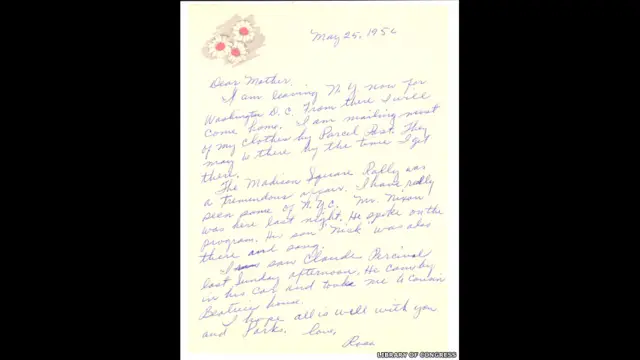 May 25, 1956
Dear Mother.
I am leaving N.Y. now for
Washington D.C. From there I will
come home. I am mailing most
of my clothes by Parcel Post. They
may be there by the time I get
there.
The Madison Square Rally was
a tremendous affair. I have really
seen some of N.Y.C. Mr. Nixon
was here last night. He spoke on the
program. His son Nick was also
there and sang.
I saw Claude Percival
last Sunday afternoon. He came by
in his car and took me to Cousin
Beatrice house.
I hope all is well with you
and Parks. love,
Rosa
LIBRARY OF CONGRESS